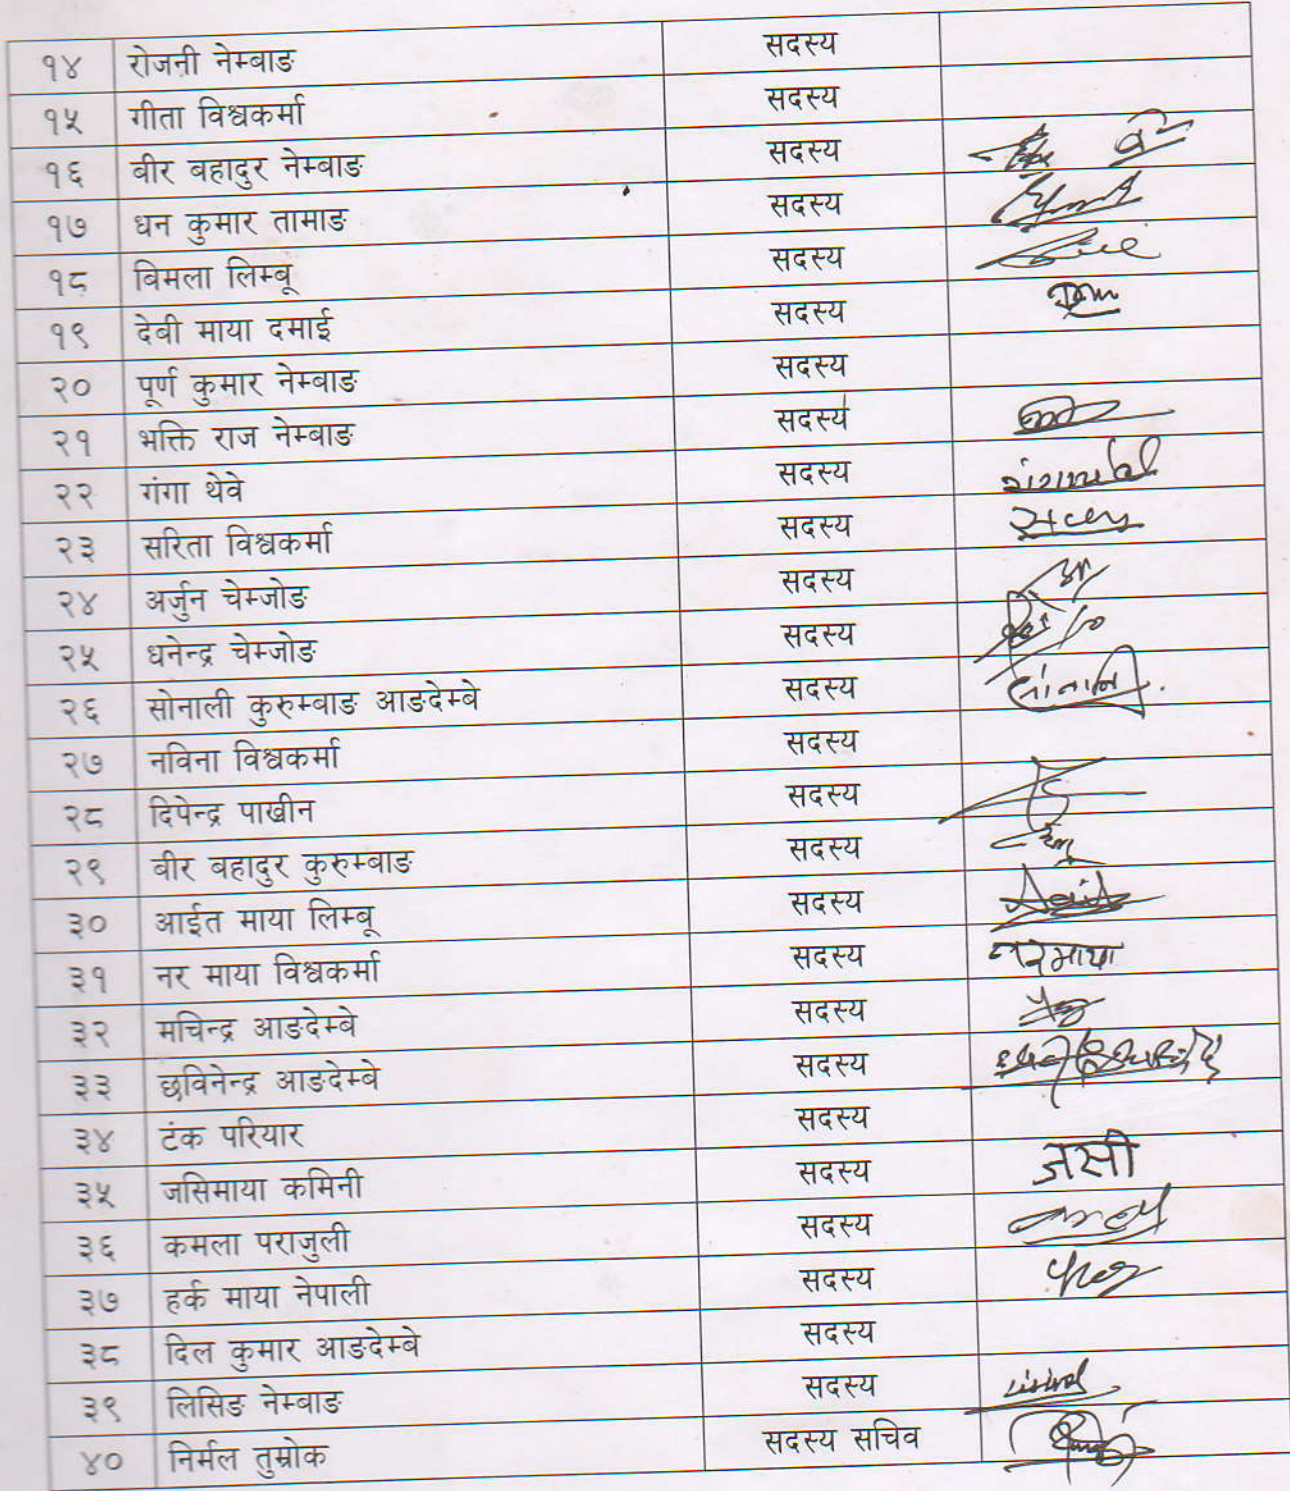 १४ रोजनी नेम्बाङ सदस्य
१५ गीता विश्वकर्मा सदस्य
१६ बीर बहादुर नेम्बाङ सदस्य
१७ धन कुमार तामाङ सदस्य
१८ बिमला लिम्बू सदस्य
१९ देबी माया दमाई सदस्य
२० पूर्ण कुमार नेम्बाङ सदस्य
२१ भक्ति राज नेम्बाङ सदस्य
२२ गंगा थेवे सदस्य
२३ सरिता विश्वकर्मा सदस्य
२४ अर्जुन चेम्जोङ सदस्य
२५ धनेन्द्र चेम्जोङ सदस्य
२६ सोनाली कुरुम्बाङ आङदेम्बे सदस्य
२७ नविना विश्वकर्मा सदस्य
२८ दिपेन्द्र पाख्रीन सदस्य
२९ बीर बहादुर कुरुम्बाङ सदस्य
३० आईत माया लिम्बू सदस्य
३१ नर माया विश्वकर्मा सदस्य नरमाया
३२ मचिन्द्र आङदेम्बे सदस्य
३३ छविनेन्द्र आङदेम्बे सदस्य
३४ टंक परियार सदस्य
३५ जसिमाया कमिनी सदस्य जसी
३६ कमला पराजुली सदस्य
३७ हर्क माया नेपाली सदस्य
३८ दिल कुमार आङदेम्बे सदस्य
३९ लिसिङ नेम्बाङ सदस्य
४० निर्मल तुम्रोक सदस्य सचिव